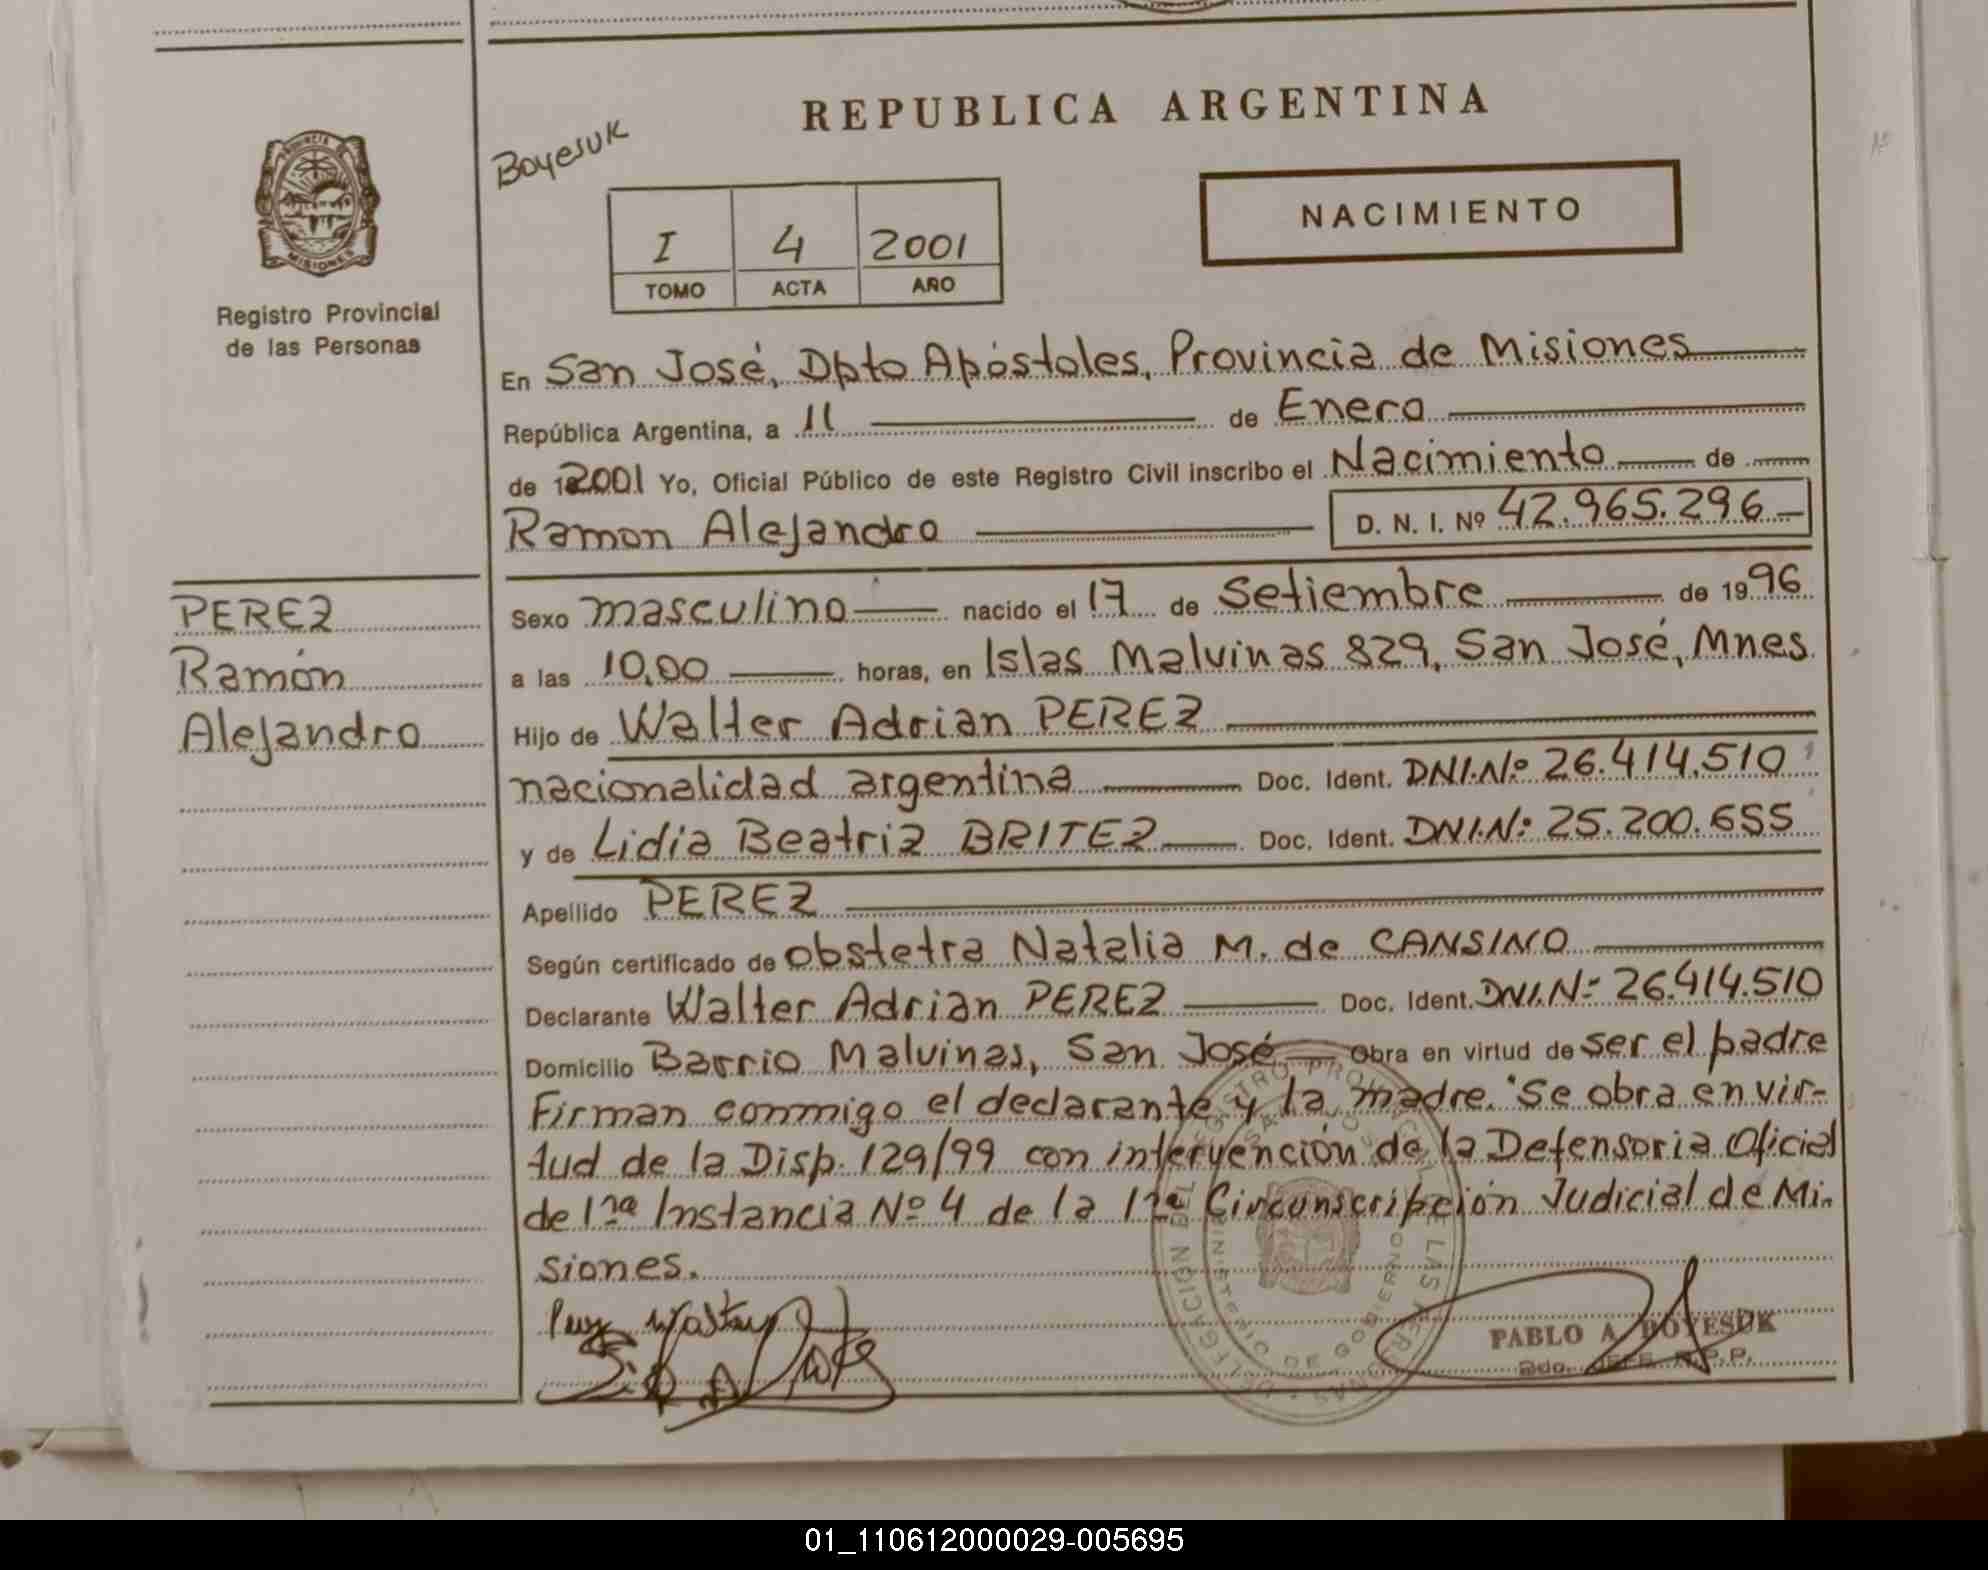 REPUBLICA ARGENTINA
Boyesuk
NACIMIENTO
I 4 2001
TOMO ACTA AÑO
PROVINCIA
MISIONES
Registro Provincial
de las Personas
En San José, Dpto Apóstoles, Provincia de Misiones
República Argentina, a 11 de Enero
de 2001 Yo, Oficial Público de este Registro Civil inscribo el Nacimiento de
Ramon Alejandro D. N. I. Nº 42.965.296
PEREZ
Ramón
Alejandro
Sexo masculino nacido el 17 de Setiembre de 1996
a las 10,00 horas, en Islas Malvinas 829, San José, Mnes.
Hijo de Walter Adrian PEREZ
nacionalidad argentina Doc. Ident. DNI.Nº 26.414.510
y de Lidia Beatriz BRITEZ Doc. Ident. DNI.Nº 25.200.655
Apellido PEREZ
Según certificado de obstetra Natalia M. de CANSINO
Declarante Walter Adrian PEREZ Doc. Ident. DNI.Nº 26.414.510
Domicilio Barrio Malvinas, San José Obra en virtud de ser el padre
Firman conmigo el declarante y la madre. Se obra en vir-
tud de la Disp. 129/99 con intervención de la Defensoria Oficial
de 1ra Instancia Nº 4 de la 1ra Circunscripción Judicial de Mi-
siones.
DELEGACION DEL REGISTRO PROVINCIAL DE LAS PERSONAS
SAN JOSE
MINISTERIO DE GOBIERNO
PABLO A. BOYESUK
2do. JEFE R.P.P.
01_110612000029-005695